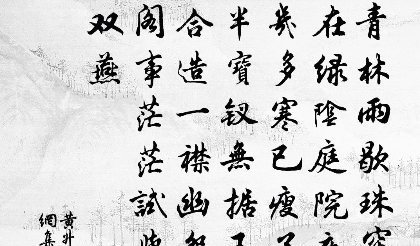 青林雨歇珠
在绿陰庭院
幾多寒已瘦
半寶釵無据
合造一襟幽
閣事茫茫試
双燕
黄升
網集